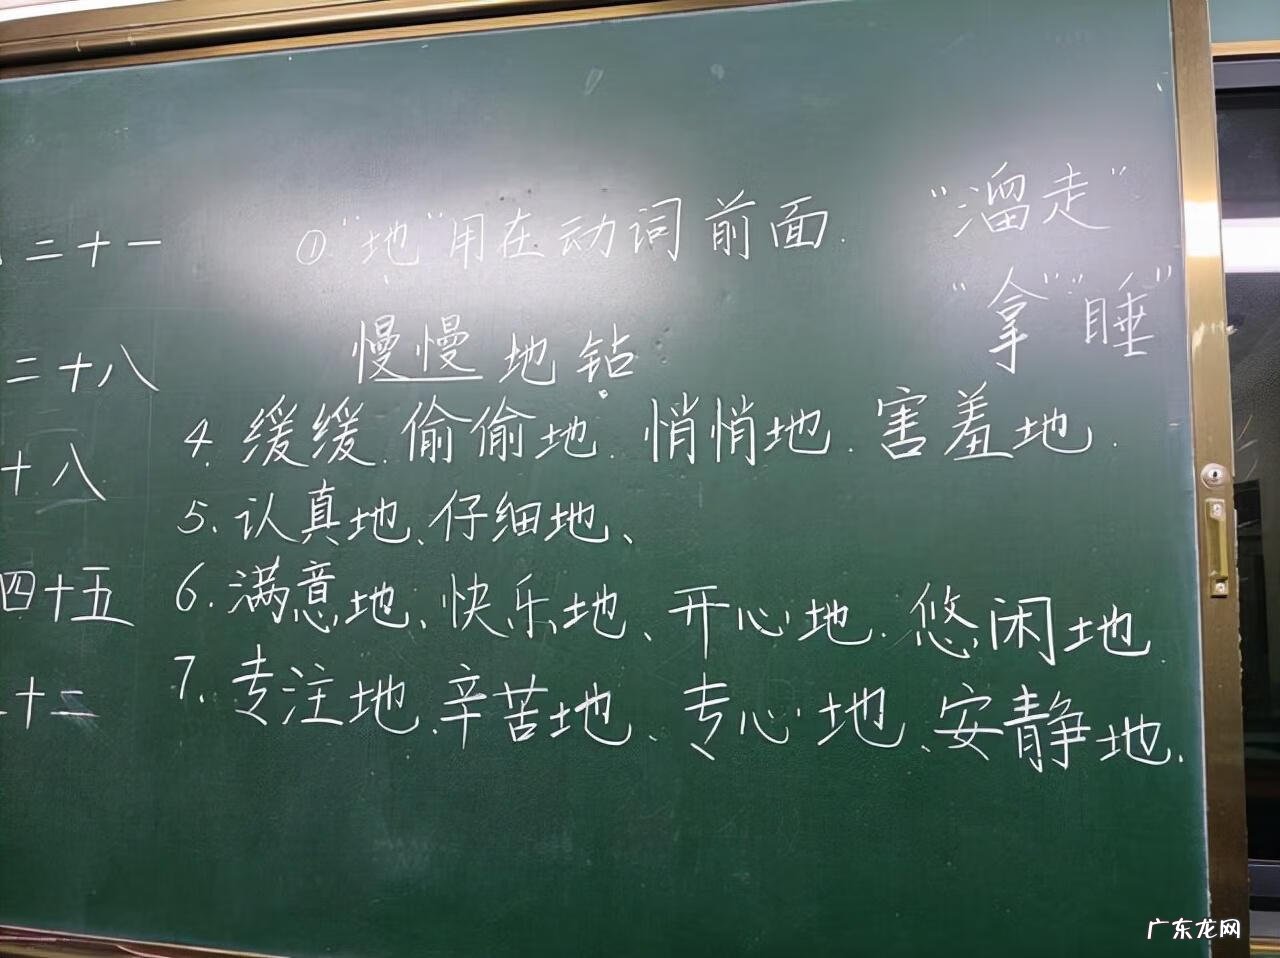 二十一
①"地"用在动词前面.
"溜走"
"拿""睡"
二十八
慢慢地钻
十八
4. 缓缓.偷偷地.悄悄地.害羞地.
5.认真地、仔细地、
四十五
6.满意地、快乐地、开心地.悠闲地.
十二
7.专注地.辛苦地、专心地、安静地.
广东龙网